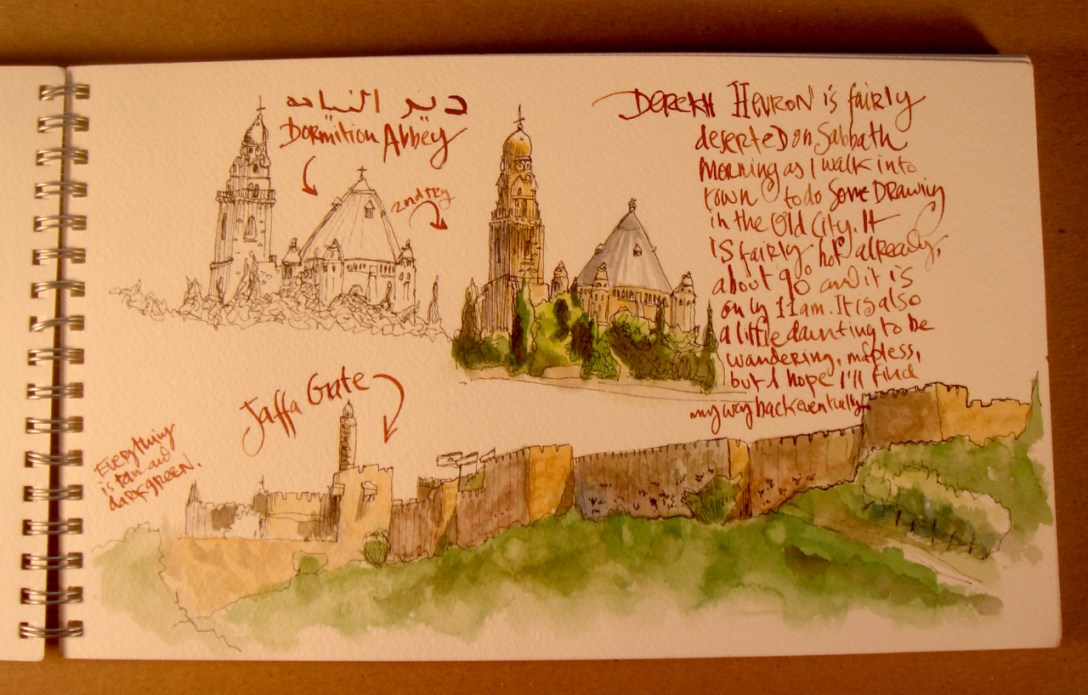 دير النياحه
Dormition Abbey
2nd try
DEREKH HEVRON is fairly
deserted on Sabbath
Morning as I walk into
town to do Some Drawing
in the Old City. It
is fairly hot already,
about 90 and it is
only 11am. It is also
a little daunting to be
wandering, mapless,
but I hope I'll find
my way back eventually.
Jaffa Gate
Everything
is tan and
dark green.